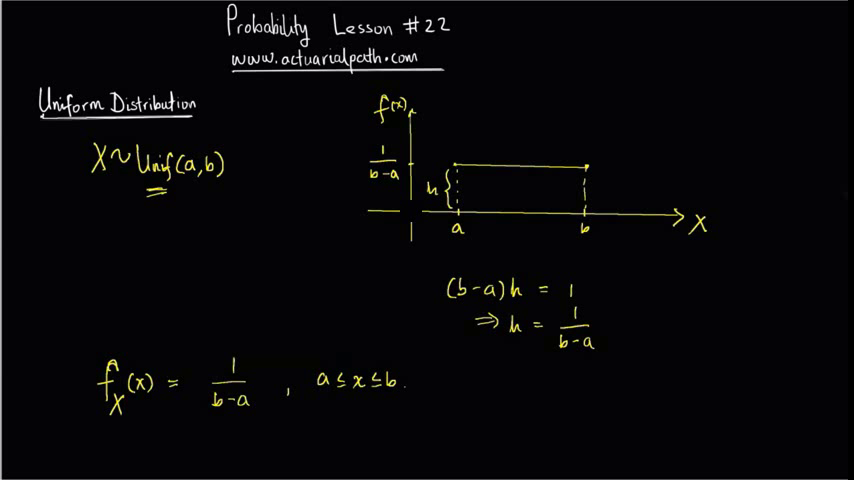 Probability Lesson #22
www.actuarialpath.com
Uniform Distribution
X ~ Unif(a,b)
f(x)
1
b-a
h
a
b
X
(b-a)h = 1
⇒ h = 1/(b-a)
f_X(x) = 1/(b-a) , a ≤ x ≤ b.